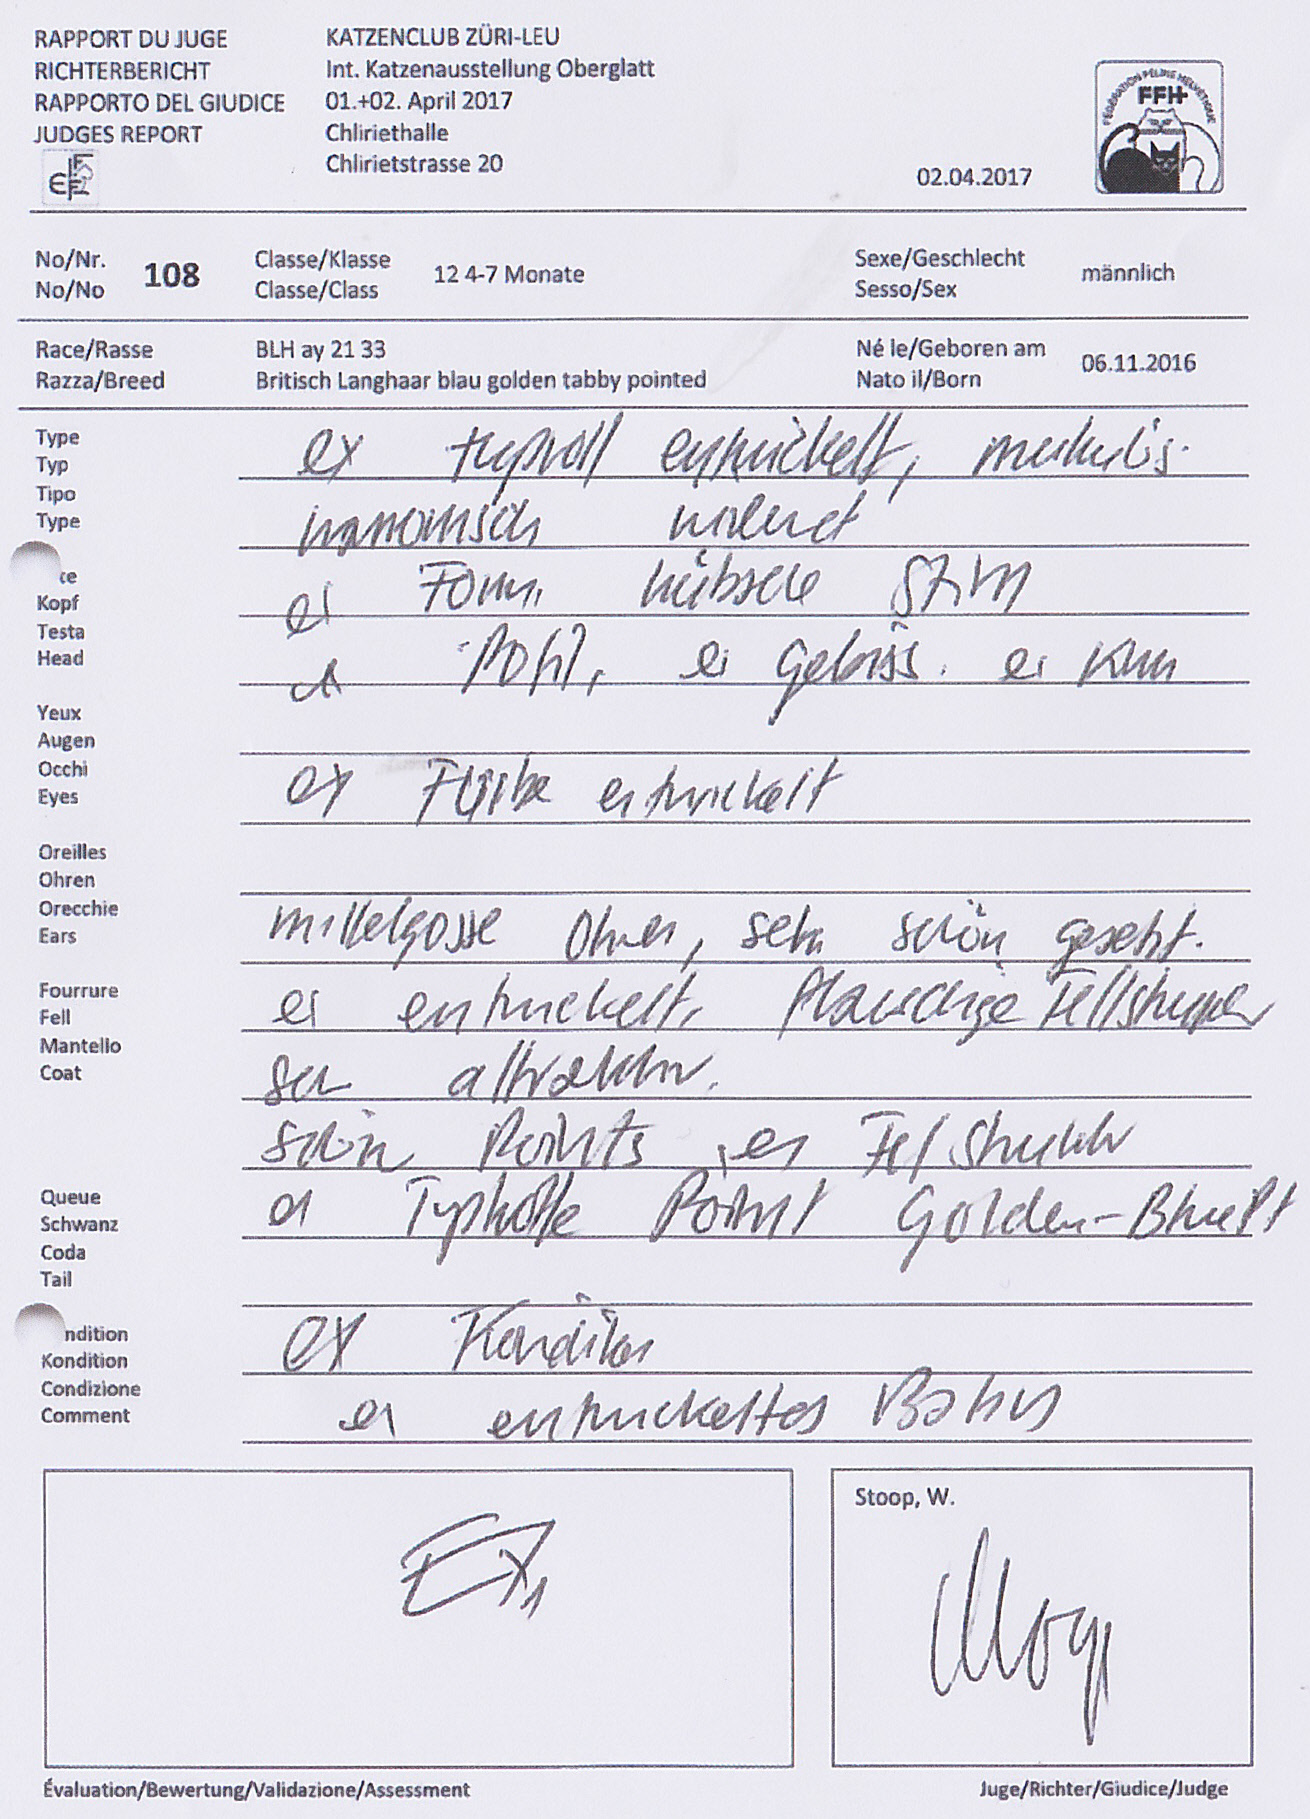 RAPPORT DU JUGE
RICHTERBERICHT
RAPPORTO DEL GIUDICE
JUDGES REPORT
KATZENCLUB ZÜRI-LEU
Int. Katzenausstellung Oberglatt
01.+02. April 2017
Chliriethalle
Chlirietstrasse 20
02.04.2017
FÉDÉRATION FÉLINE HELVÉTIQUE
FFH
No/Nr.
No/No
108
Classe/Klasse
Classe/Class
12 4-7 Monate
Sexe/Geschlecht
Sesso/Sex
männlich
Race/Rasse
Razza/Breed
BLH ay 21 33
Britisch Langhaar blau golden tabby pointed
Né le/Geboren am
Nato il/Born
06.11.2016
Type
Typ
Tipo
Type
ex typvoll entwickelt,
harmonisch
te
Kopf
Testa
Head
ex Form, hübsche Stirn
ex Profil, ex Gebiss. ex Kinn
Yeux
Augen
Occhi
Eyes
ex Farbe entwickelt
Oreilles
Ohren
Orecchie
Ears
mittelgrosse Ohren, sehr schön gesetzt.
Fourrure
Fell
Mantello
Coat
ex entwickelt, flauschige Fellstruktur
sehr attraktiv.
schön Points, ex Fellstruktur
Queue
Schwanz
Coda
Tail
ex Point Golden-
ndition
Kondition
Condizione
Comment
ex Kondition
ex entwickeltes Baby
EX1
Stoop, W.
Évaluation/Bewertung/Validazione/Assessment
Juge/Richter/Giudice/Judge